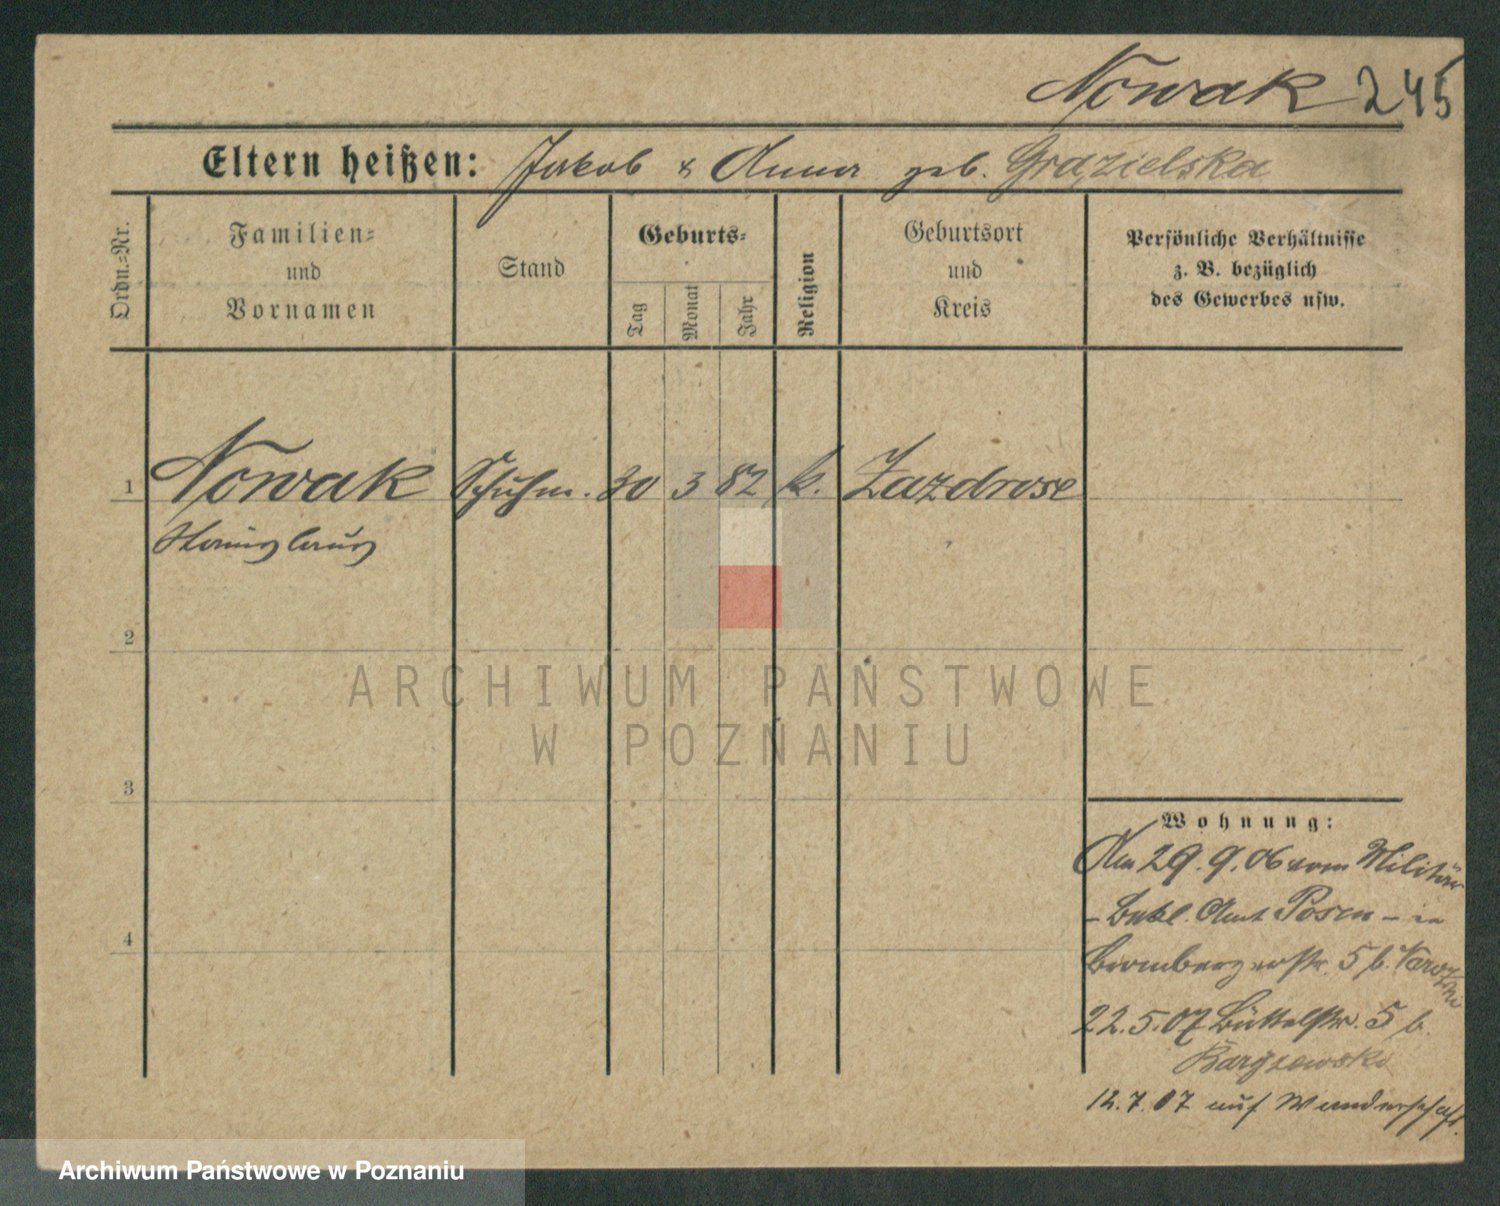 Nowak 245
Eltern heißen: Jakob & Anna geb. Grązielska
Ordn.=Nr.
Familien=
und
Vornamen
Stand
Geburts=
Tag
Monat
Jahr
Religion
Geburtsort
und
Kreis
Persönliche Verhältnisse
z. B. bezüglich
des Gewerbes usw.
1 Nowak Schuhm. 30 3 82 k. Zazdrose
2
3
4
ARCHIWUM PAŃSTWOWE
W POZNANIU
Wohnung:
Am 29.9.06 vom Militär
- Bekl. Amt Posen - in
Brombergerstr. 5 b.
22.5.07 Büttelstr. 5 b.
12.7.07 auf Wanderschaft.
Archiwum Państwowe w Poznaniu